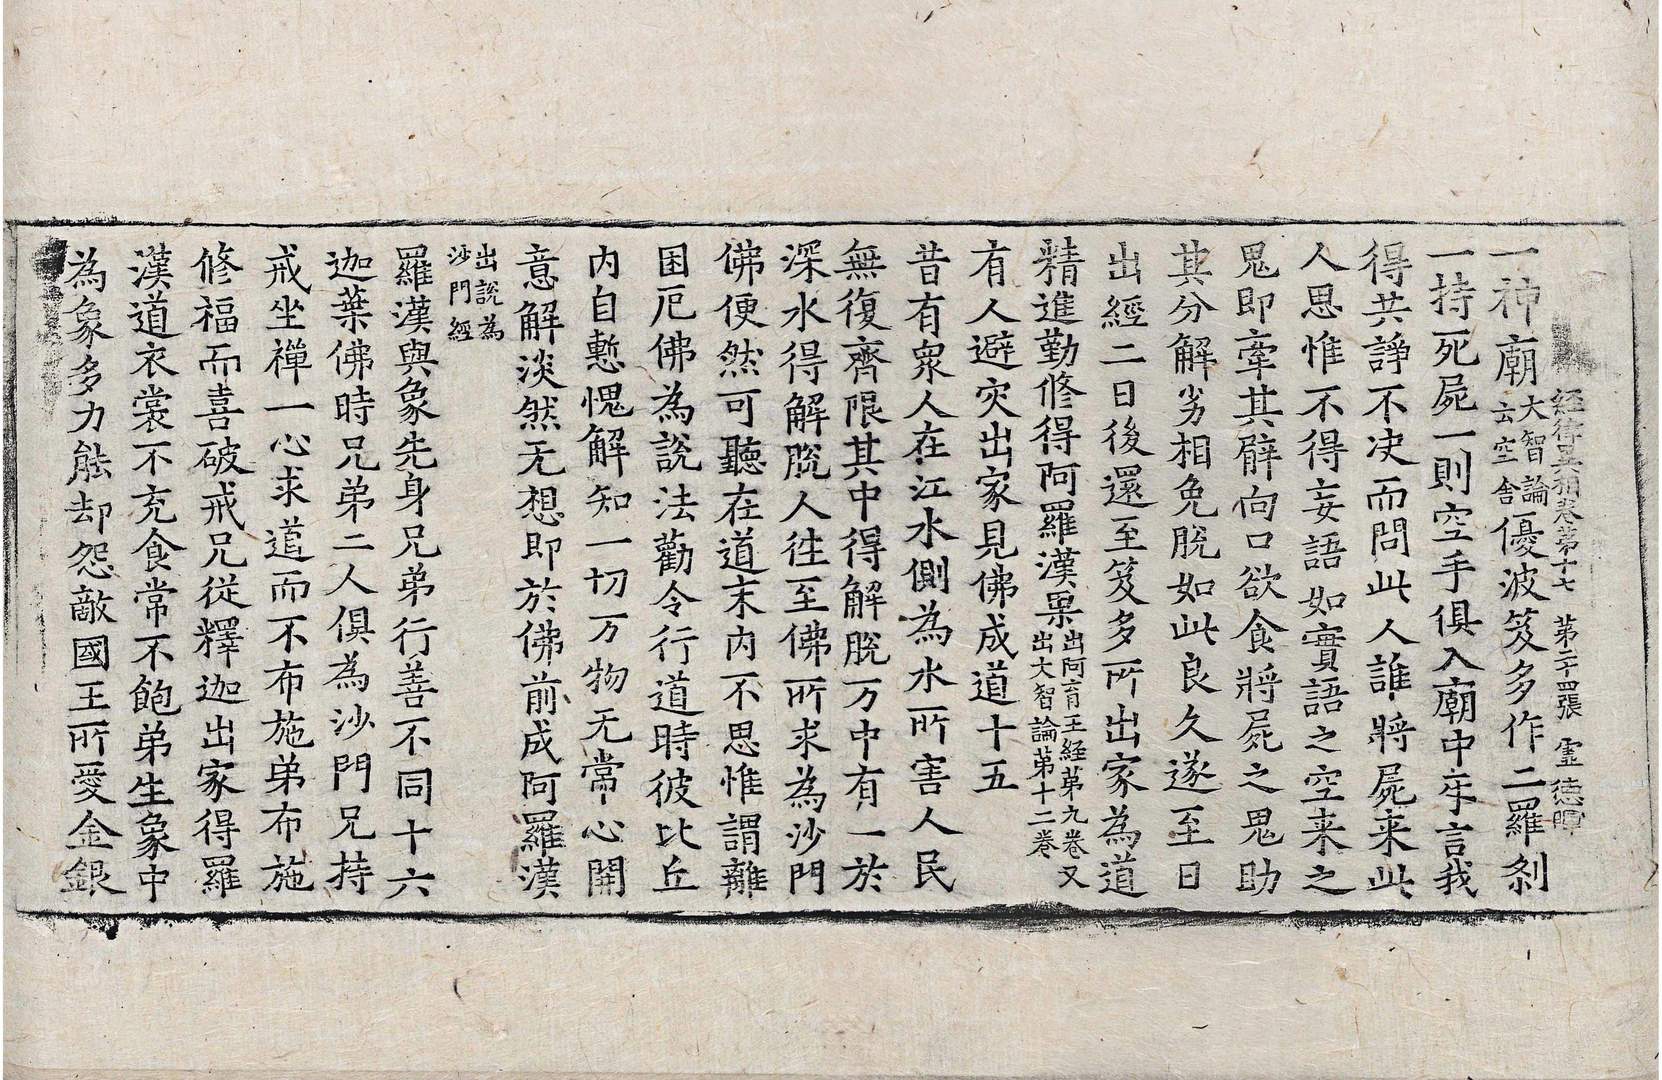 経律異相卷第十七 第二十四張 霊 德暉
一神廟大智論云空舍優波笈多作二羅刹
一持死屍一則空手俱入廟中㡿言我
得共諍不决而問此人誰將屍来此
人思惟不得妄語如實語之空来之
鬼即牽其臂向口欲食將屍之鬼助
其分解劣相免脫如此良久遂至日
出經二日後還至笈多所出家為道
精進勤修得阿羅漢果出阿育王經第九卷又出大智論第十二卷
有人避灾出家見佛成道十五
昔有眾人在江水側為水所害人民
無復齊限其中得解脫万中有一於
深水得解脫人往至佛所求為沙門
佛便然可聽在道末内不思惟謂離
困厄佛為說法勸令行道時彼比丘
内自慙愧解知一切万物无常心開
意解淡然无想即於佛前成阿羅漢
出說為沙門經
羅漢與象先身兄弟行善不同十六
迦葉佛時兄弟二人俱為沙門兄持
戒坐禪一心求道而不布施弟布施
修福而喜破戒兄從釋迦出家得羅
漢道衣裳不充食常不飽弟生象中
為象多力能却怨敵國王所愛金銀